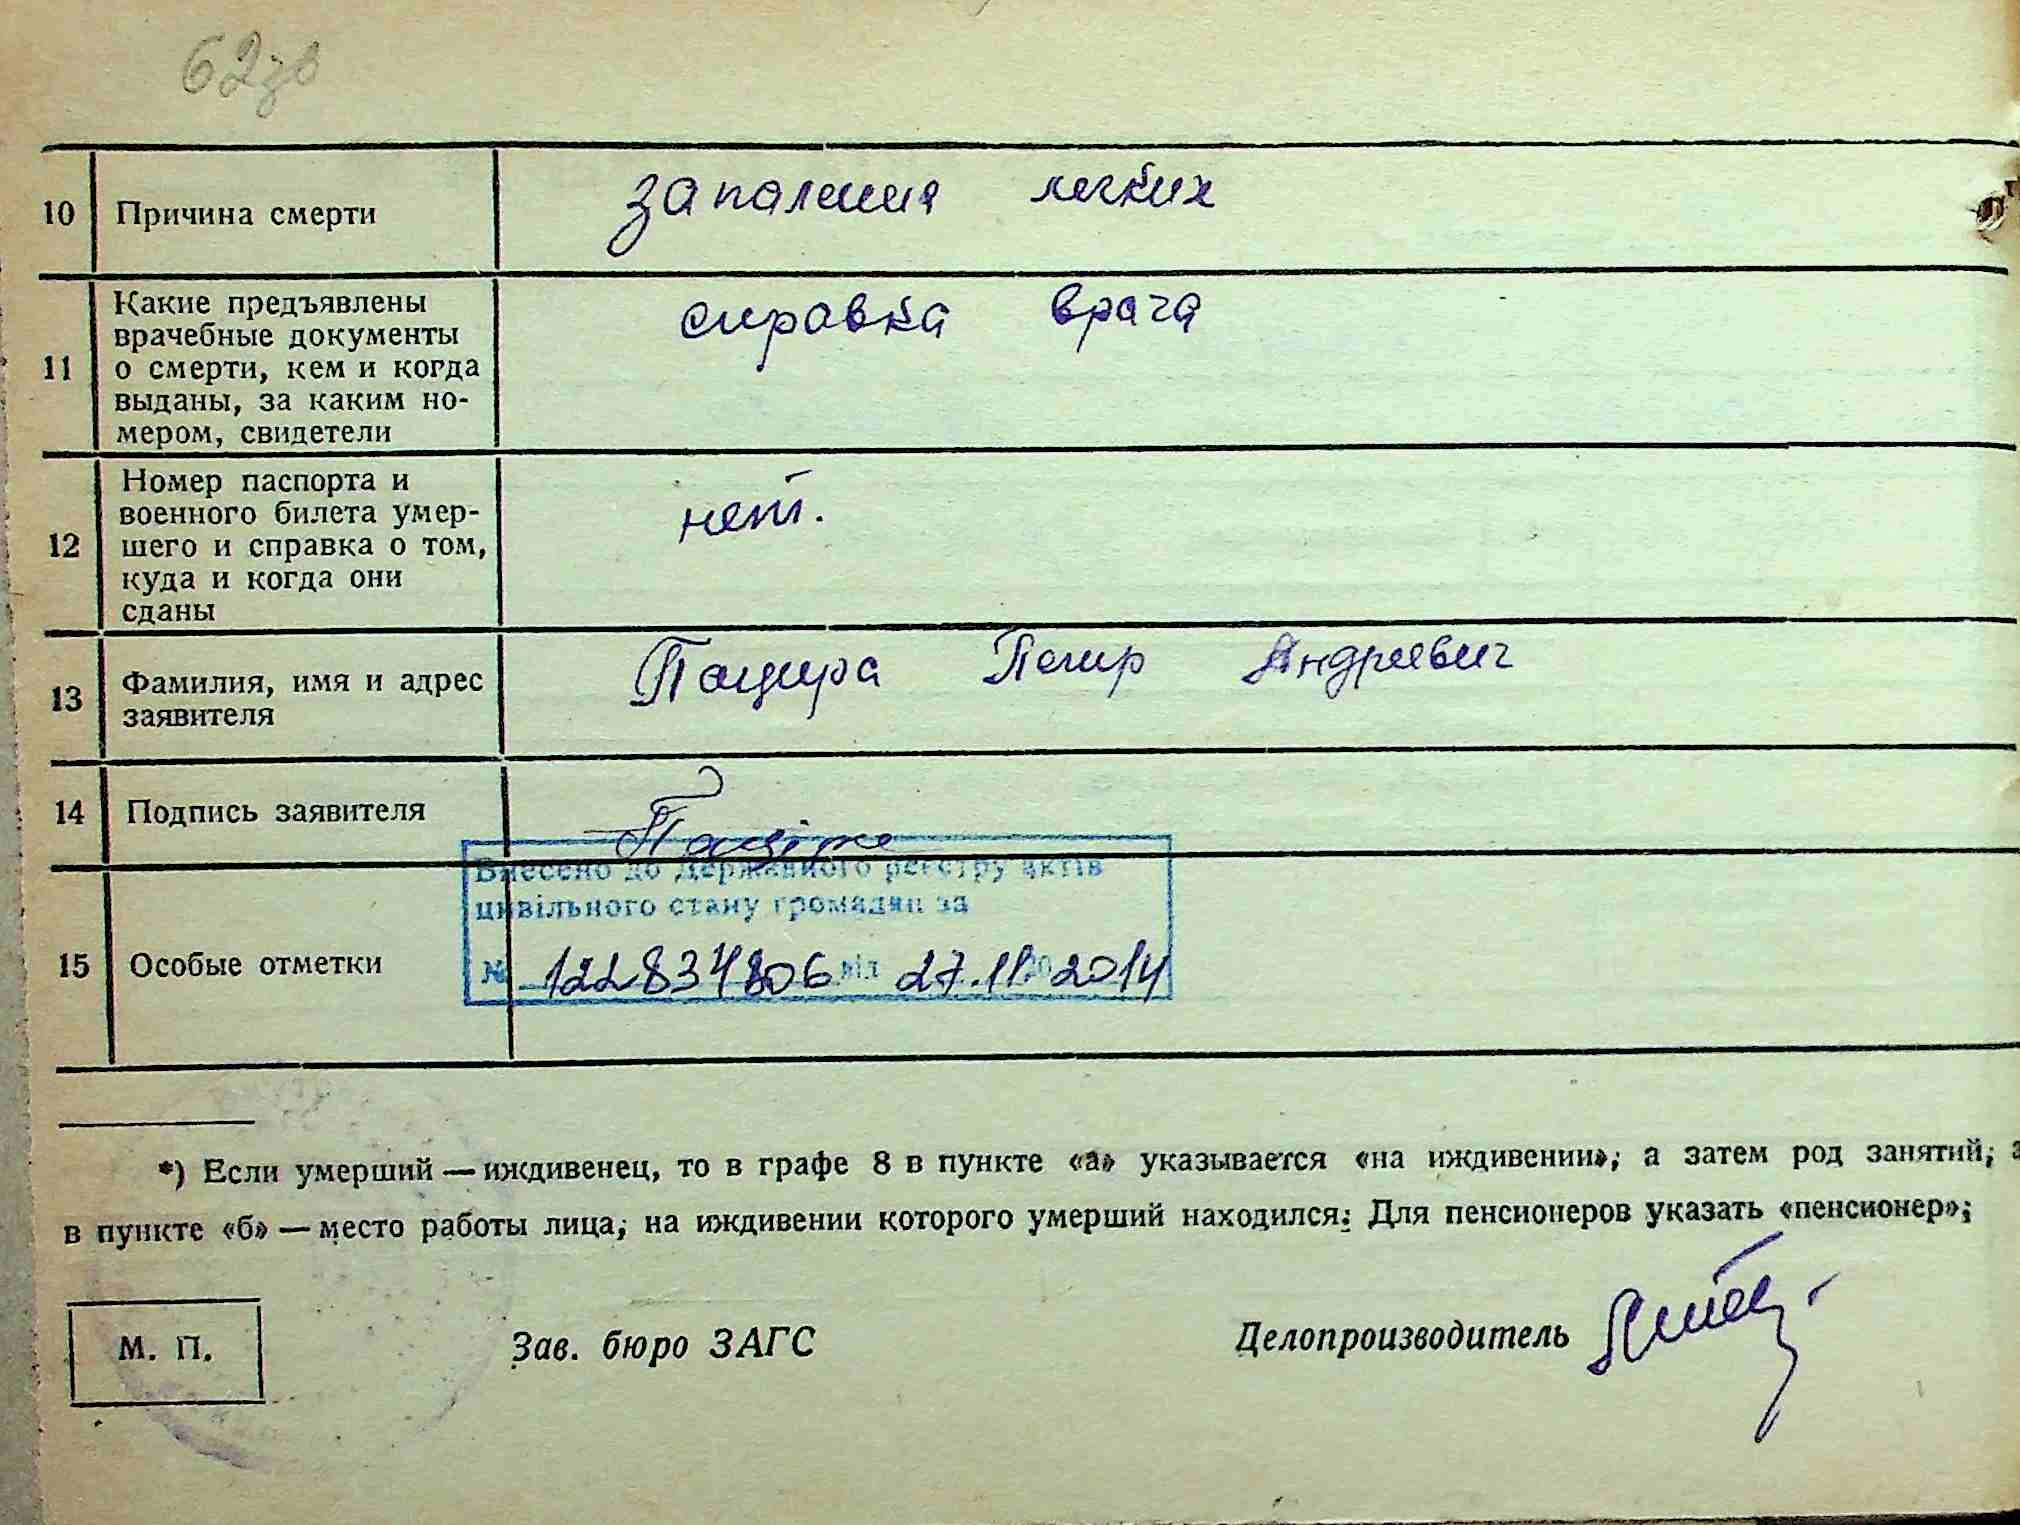 62зв
10 Причина смерти запаления легких
11 Какие предъявлены
врачебные документы
о смерти, кем и когда
выданы, за каким но-
мером, свидетели
справка врача
12 Номер паспорта и
военного билета умер-
шего и справка о том,
куда и когда они
сданы
нет.
13 Фамилия, имя и адрес
заявителя
Пацира Петр Андреевич
14 Подпись заявителя
Внесено до Державного реєстру актів
цивільного стану громадян за
№ 122834806 від 27.11.2014
15 Особые отметки
*) Если умерший — иждивенец, то в графе 8 в пункте «а» указывается «на иждивении»; а затем род занятий;
в пункте «б» — место работы лица; на иждивении которого умерший находился: Для пенсионеров указать «пенсионер»;
М. П. Зав. бюро ЗАГС Делопроизводитель